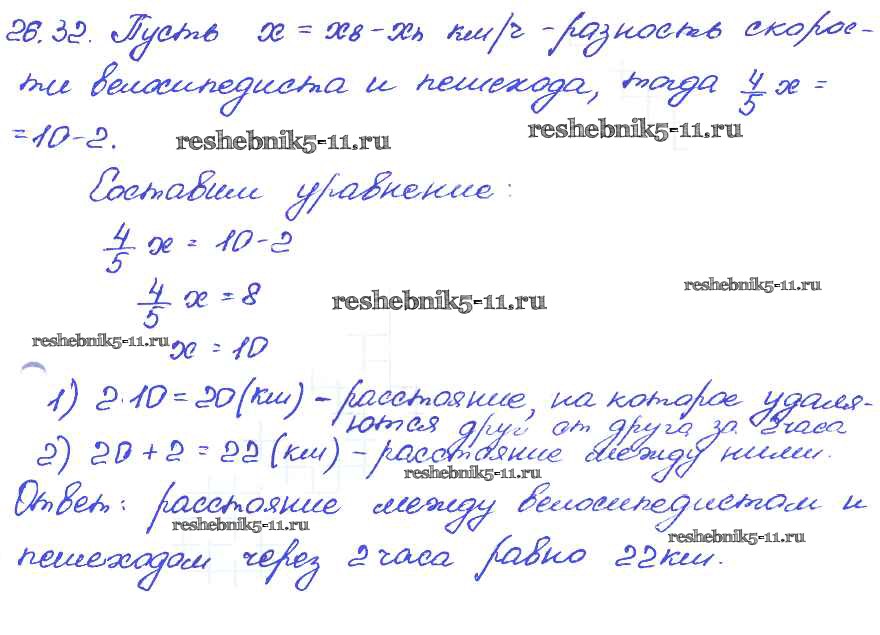 26.32. Пусть x = xв - xп км/ч - разность скорос-
ти велосипедиста и пешехода, тогда 4/5 x =
= 10 - 2.
reshebnik5-11.ru reshebnik5-11.ru
Составим уравнение:
4/5 x = 10 - 2
4/5 x = 8
reshebnik5-11.ru reshebnik5-11.ru
reshebnik5-11.ru
x = 10
1) 2·10 = 20 (км) - расстояние, на которое удаля-
ются друг от друга за 2 часа
2) 20 + 2 = 22 (км) - расстояние между ними.
reshebnik5-11.ru
Ответ: расстояние между велосипедистом и
reshebnik5-11.ru reshebnik5-11.ru
пешеходом через 2 часа равно 22 км.